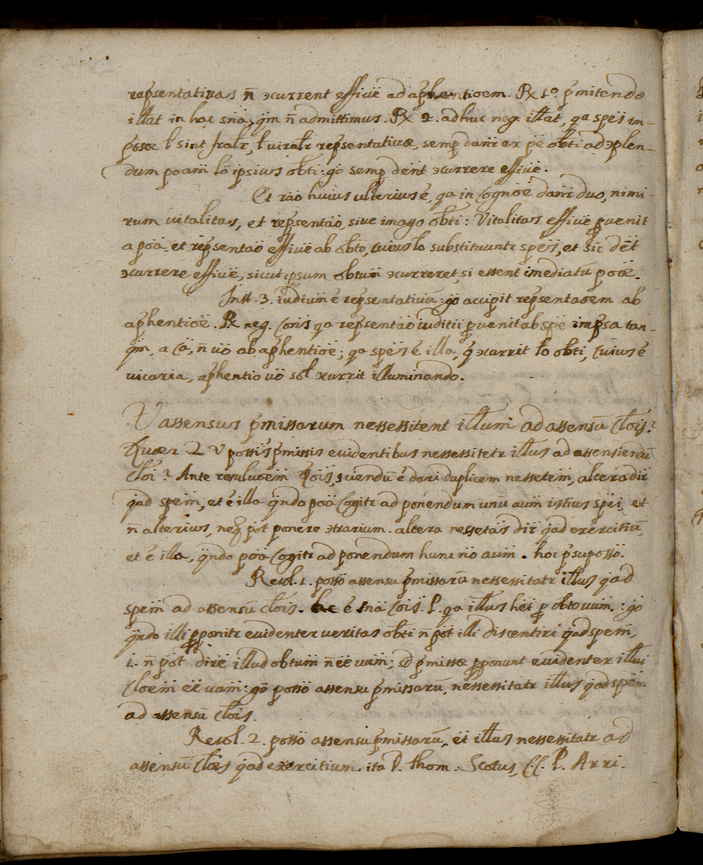 repsentativas n̄ ɔcurrent effivē ad aphentioēm. R̸ 1º. p̄mitendo
illat in hac snā, qm̄ n̄ admittimus. R̸ 2. adhuc neg. illat, qa speī im-
p̄ssæ l̄ sint fralr, l̄ viralr repsentativæ, semp danr̄ ex pē obti ad ɔplen-
dum poam̄ lō ipsius obti: gō semp dēnt ɔcurrere effivē.
Et raō huius ulterius ē, qa in Cognoē danr̄ duo, nimi-
rum vitalitas, et repsentaō, sive imago obti: Vitalitas effivē pvenit
a poā. et repsentaō effivē ab obto, cuius lō substituuntr speīs, et sic dēt
ɔcurrere effivē, sicut ipsum obtum ɔcurreret, si essent imediatū poæ.
Inst. 3. iudiuīm ē repsentativūm: gō accipit repsentaoēm ab
aphentioē. R̸ neg. Cōis qa repsentaō iuditii pvenit ab spē impsa tan-
qm̄, a Cā, n̄ vō ab aphentioē; qa speīs ē illa, q̄ ɔcurrit lō obti, Cuius ē
vicaria, aphentio vō sol̄ ɔcurrit illuminando.
V assensus p̄missarum nessessitent illūm ad assensū Clōis?
Quær 2 V possis p̄missis evidentibus nessessitetr illūs ad assensiēnū
Clōi? Ante resoluoēm Qōis, sciendū ē dari duplicem nessetēm, altera dir
qad spem̄, et ē illa qndo poā Cogitr ad ponendum unū aūm istius speī, et
n̄ alterius, neq pōt ponere ɔtrarium. altera nessetas dir qad exercitiū,
et ē illa, qndo poā Cogitr ad ponendum hunc nō aūm. hoc psuposso.
Resol. 1. possō assensu p̄missarū nessessitatr illūs qad
spem̄ ad assensū clōis. hæc ē snā Cōis P. qa illūs hēt p obto uum, : gō
qndo illi pponitr evidenter veritas obti n̄ pōt illi discentiri qad spem̄,
1. n̄ pōt dire illud obtum n̄ eē uām: sd p̄missæ pponunt evidenter illūi
Cloēm eē uām: gō possō assensu p̄missarū, nessessitatr illūs qad spem̄
ad assensū Clōis.
Resol. 2. possō assensu p̄missarū, eī illūs nessessitatr ad
assensū Clōes qad exercitium. ita D. thom. Scotus, CC. P. Arri.